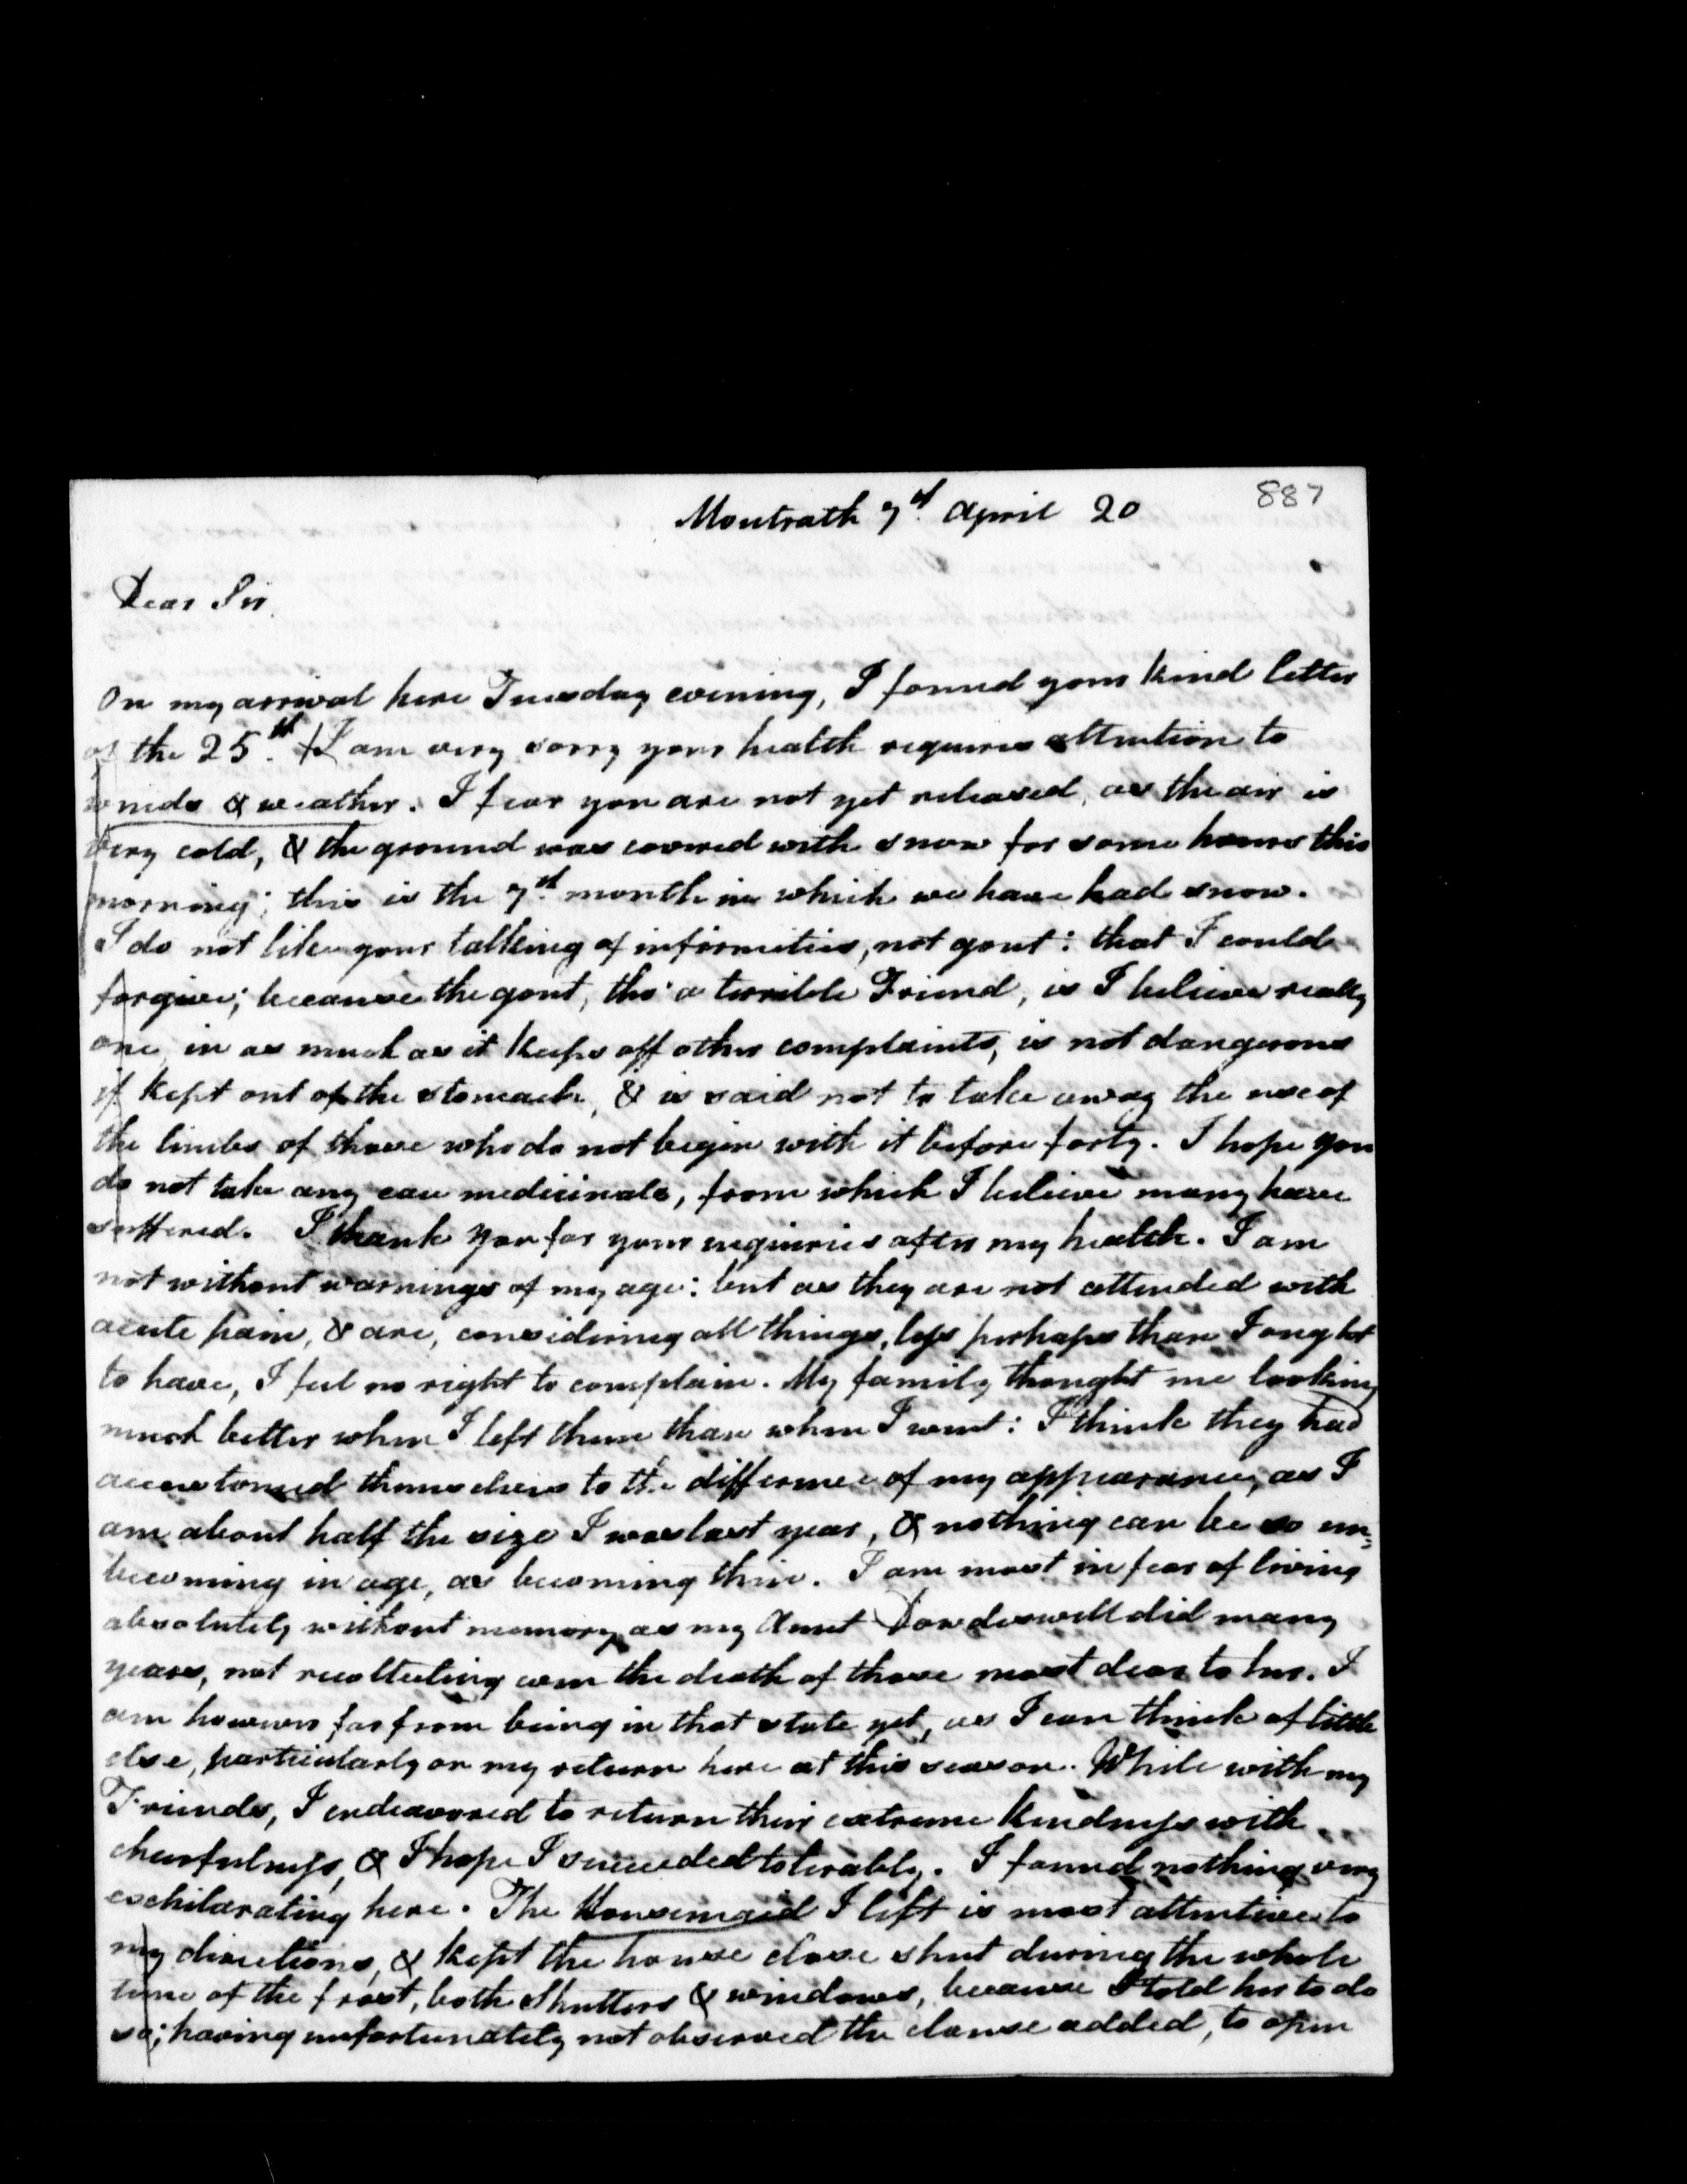 887
Montrath 7th April 20
Dear Sir
On my arrival here Tuesday evening, I found your kind letter
of the 25th. I am very sorry your health requires attention to
winds & weather. I fear you are not yet released, as the air is
very cold, & the ground was covered with snow for some hours this
morning; this is the 7th month in which we have had snow.
I do not like your talking of infirmities, not gout: that I could
forgive; because the gout, tho' a terrible Friend, is I believe really
one, in as much as it keeps off other complaints, is not dangerous
if kept out of the stomach, & is said not to take away the use of
the limbs of those who do not begin with it before forty. I hope you
do not take any eau medicinale, from which I believe many have
suffered. I thank you for your inquiries after my health. I am
not without warnings of my age: but as they are not attended with
acute pain, & are, considering all things, less perhaps than I ought
to have, I feel no right to complain. My family thought me looking
much better when I left them than when I went: I think they had
accustomed themselves to the difference of my appearance, as I
am about half the size I was last year, & nothing can be so un=
becoming in age, as becoming thin. I am most in fear of living
absolutely without memory, as my Aunt Dowdeswell did many
years, not recollecting even the death of those most dear to her. I
am however far from being in that state yet, as I can think of little
else, particularly on my return here at this season. While with my
Friends, I endeavored to return their extreme kindness with
chearfulness, & I hope I succeeded tolerably. I found nothing very
exchilarating here. The Housemaid I left is most attentive to
my directions, & kept the house close shut during the whole
time of the frost, both Shutters & windows, because I told her to do
so; having unfortunately not observed the clause added, to open